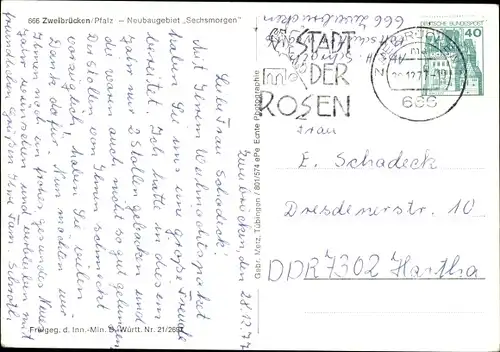 666 Zweibrücken/Pfalz — Neubaugebiet „Sechsmorgen"
Zweibrücken, den 28.12.77
Liebe Frau Schadeck!
Mit Ihrem Weihnachtspaket
haben Sie uns große Freude
bereitet. Ich hatte in diesem
Jahr nur 2 Stollen gebacken und
die waren auch nicht so gut gelungen.
Der Stollen von Ihnen schmeckt
vorzüglich, haben Sie vielen
Dank dafür! Nun möchten wir
Ihnen noch ein frohes, gesundes Neues
Jahr wünschen und verbleiben mit
freundlichen Grüßen Ihre Fam. Schroll.
Freigeg. d. Inn.-Min. B.-Württ. Nr. 21/2691
Gebr. Metz, Tübingen / 801/574 ePe Echte Photographie
666 Zweibrücken
STADT
DER
ROSEN
666
DEUTSCHE BUNDESPOST
40
Frau
E. Schadeck
Dresdenerstr. 10
DDR 7302 Hartha